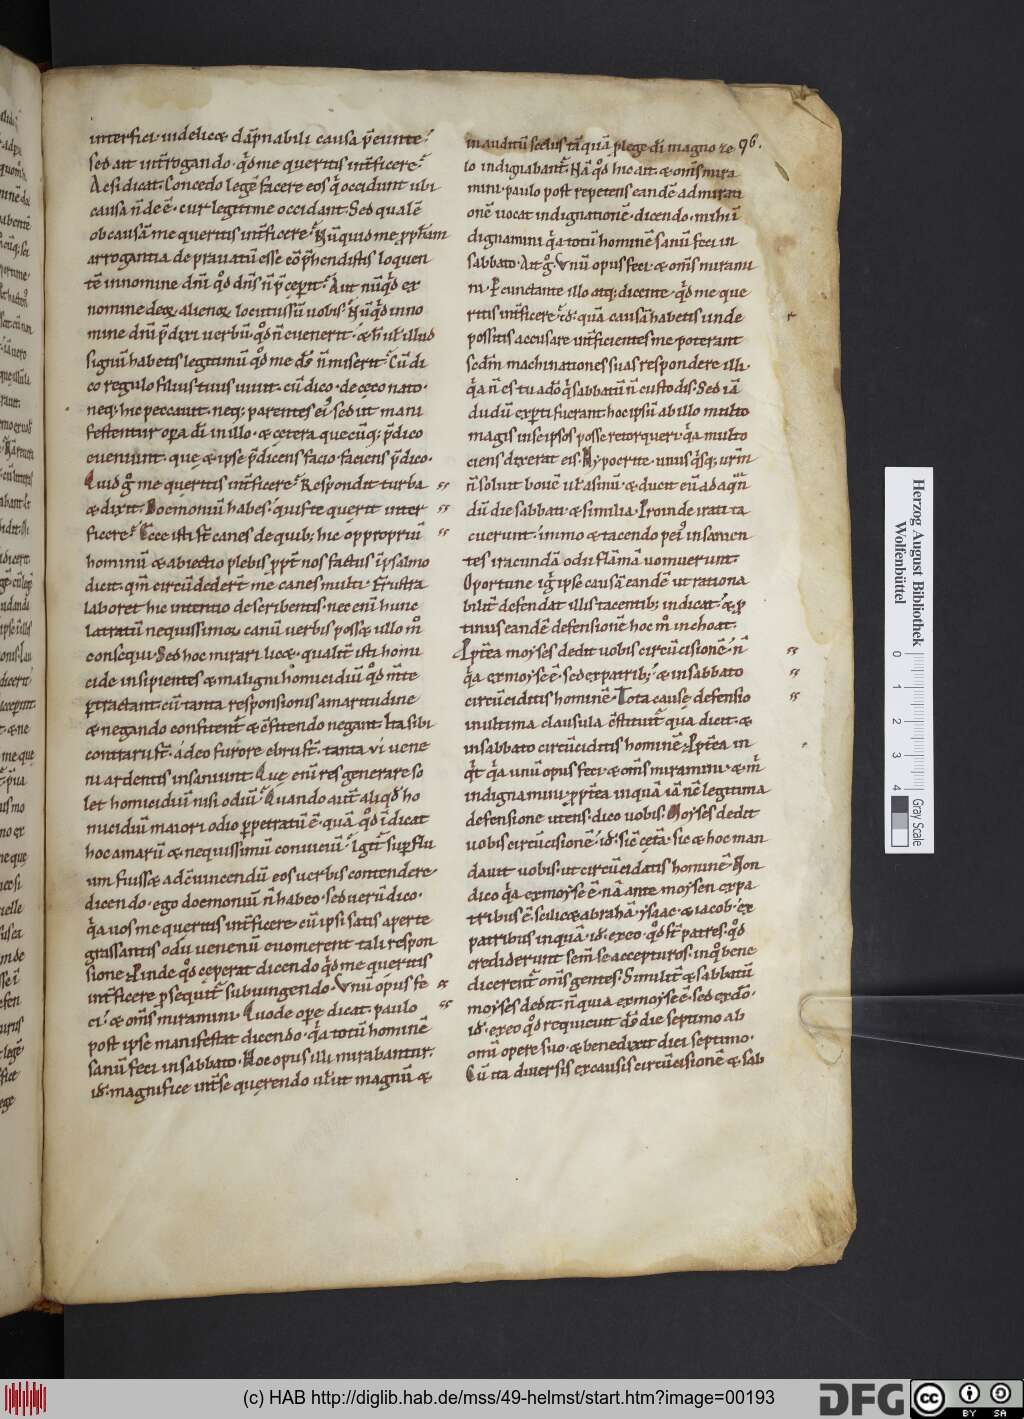 interfici. indelicæ dap̄nabili causa p̄eunte.
sed ait int̄rogando. q̇d me queritis int̄ficere.
Ac si dicat. Concedo legē facere eos q̇ occidunt ubi
causa n̄ de ē. cur legitime occidant. Sed qualē
ob causā me queritis int̄ficere. Nūquid me ꝓph̄am
arrogantia depravatū esse eo p̄hendistis loquen
tē in nomine dn̄i qd̊ dn̄s n̄ p̄cepit. Aut nūqd̊ ex
nomine deoꝝ alienoꝝ locutussū uobis. Nūqd̊ in no
mine dn̄i p̄dixi uerbū. qd̊ n̄ euenerit. & h̄ ul̄ illud
signū habetis legitimū qd̊ me ds̄ n̄ miserit. Cū di
co regulo filius tuus uiuit. cū dico. de cęco nato.
neq; hic peccauit. neq; parentes ei. sed ut mani
festentur oꝑa di in illo. & cętera quecūq; p̄dico
eueniunt. quę & ipse p̄dicens facio. faciens p̄dico.
Quid g̊ me queritis int̄ficere. Respondit turba
& dixit. Doemoniū habes. quis te querit inter
ficere. Ecce isti st̄ canes de quib; hic oppropriū
hominū & abiectio plebis ꝓpt̄ nos factus ī psalmo
dicit. qm̄ circūdeder̄t me canes multi. Frustra
laboret hic intentio describentis. nec enī hunc
latratū nequissimoꝝ canū uerbis possæ ullo m̊
consequi. Sed hoc mirari licæ. qualit̄ isti homi
cide insipientes & maligni homicidiū qd̊ m̄te
ꝑtractant. cū tanta responsionis amaritudine
& negando confitent̄ & c̄fitendo negant. Ita sibi
contrarii st̄. adeo furore ebrii st̄. tanta ui uene
ni ardentis insaniunt. Quę enī res generare so
let homicidiū nisi odiū. Quando aut̄ aliqd̊ ho
micidiū maiori odio ꝑpetratū ē. quā qd̊ īdicat
hoc amarū & nequissimū conuiciū. Igit̄ suꝑflu
um fuissæ ad c̄uincendū eos uerbis contendere
dicendo. ego doemoniū n̄ habeo. sed uerū dico.
q̇a uos me queritis int̄ficere. cū ipsi satis aperte
grassantis odii uenenū euomerent tali respon
sione. Proinde qd̊ cęperat dicendo q̇d me queritis
int̄ficere ꝑsequit̄ subiungendo. Vnū opus fe
ci. & om̄s miramini. Quo de oꝑe dicat. paulo
post ipse manifestat dicendo. q̇a totū hominē
sanū feci in sabbato. Hoc opus illi mirabantur.
id̄. magnifice int̄ se querendo ul̄ ut magnū &
96.
inauditū scelus tāquā ꝓ lege dī magno ze
lo indignabant̄. Nā qd̊ hic ait. & om̄s mira
mini. paulo post repetens eandē admirati
onē uocat indignationē. dicendo. mihi
dignamini q̇a totū hominē sanū feci in
sabbato. Ait g̊. Vnū opus feci. & om̄s mirami
ni. Percunctante illo atq; dicente. q̇d me que
ritis int̄ficere. id̄. quā causā habetis unde
possitis accusare int̄ficientes me poterant
secdm̄ machinationes suas respondere illi.
q̇a n̄ es tu a dō q̇ sabbatū n̄ custodis. Sed iā
dudū exꝑti fuerant. hoc ipsū ab illo multo
magis in se ipsos posse retorqueri. q̇a multo
ciens dixerat eis. Hypocrite. unus q̇sq; ur̄m
n̄ soluit bouē ul̄ asinū. & ducit eū ad aq̄m
dū die sabbati. & similia. Proinde irati ta
cuerunt. immo & tacendo pei insanien
tes iracundā odii flāmā uomuerunt.
Oportune igit̄ ipse causā eandē ut rationa
bilit̄ defendat illis tacentib; indicat. & ꝓ
tinus eandē defensionē hoc m̊ inchoat.
Ppt̄ea moyses dedit uobis circūcisionē. n̄
q̇a ex moyse ē. sed ex patrib;. & in sabbato
circūciditis hominē. Tota cause defensio
in ultima clausula c̄stituit̄ qua dicit. &
in sabbato circūciditis hominē. Ppt̄ea in
q̇t q̇a unū opus feci. & om̄s miramini. & m̄
indignamini. ꝓpt̄ea inquā iā n̄c legitima
defensione utens. dico uobis. Moyses dedit
uobis circūcisionē. id̄. sic cęta. sic & hoc man
dauit uobis. ut circūcidatis hominē. Non
dico q̇a ex moyse ē. nā ante moysen ex pa
tribus ē. scilicæ abrahā. ysaac. & iacob. ex
patribus inquā. id̄. ex eo. qd̊ st̄ patres. qd̊
crediderunt sem̄ se accepturos. in q̊ bene
dicerent̄ om̄s gentes. Similit̄ & sabbatū
moyses dedit. n̄ quia ex moyse ē. sed ex dō.
id̄. ex eo qd̊ requieuit ds̄ die septimo ab
omi opere suo. & benedixit diei septimo.
Cū ita diuersis ex causis circūcisionē & sab
Herzog August Bibliothek
Wolfenbüttel
0 1 2 3 4
Gray Scale
(c) HAB http://diglib.hab.de/mss/49-helmst/start.htm?image=00193
DFG
cc BY SA